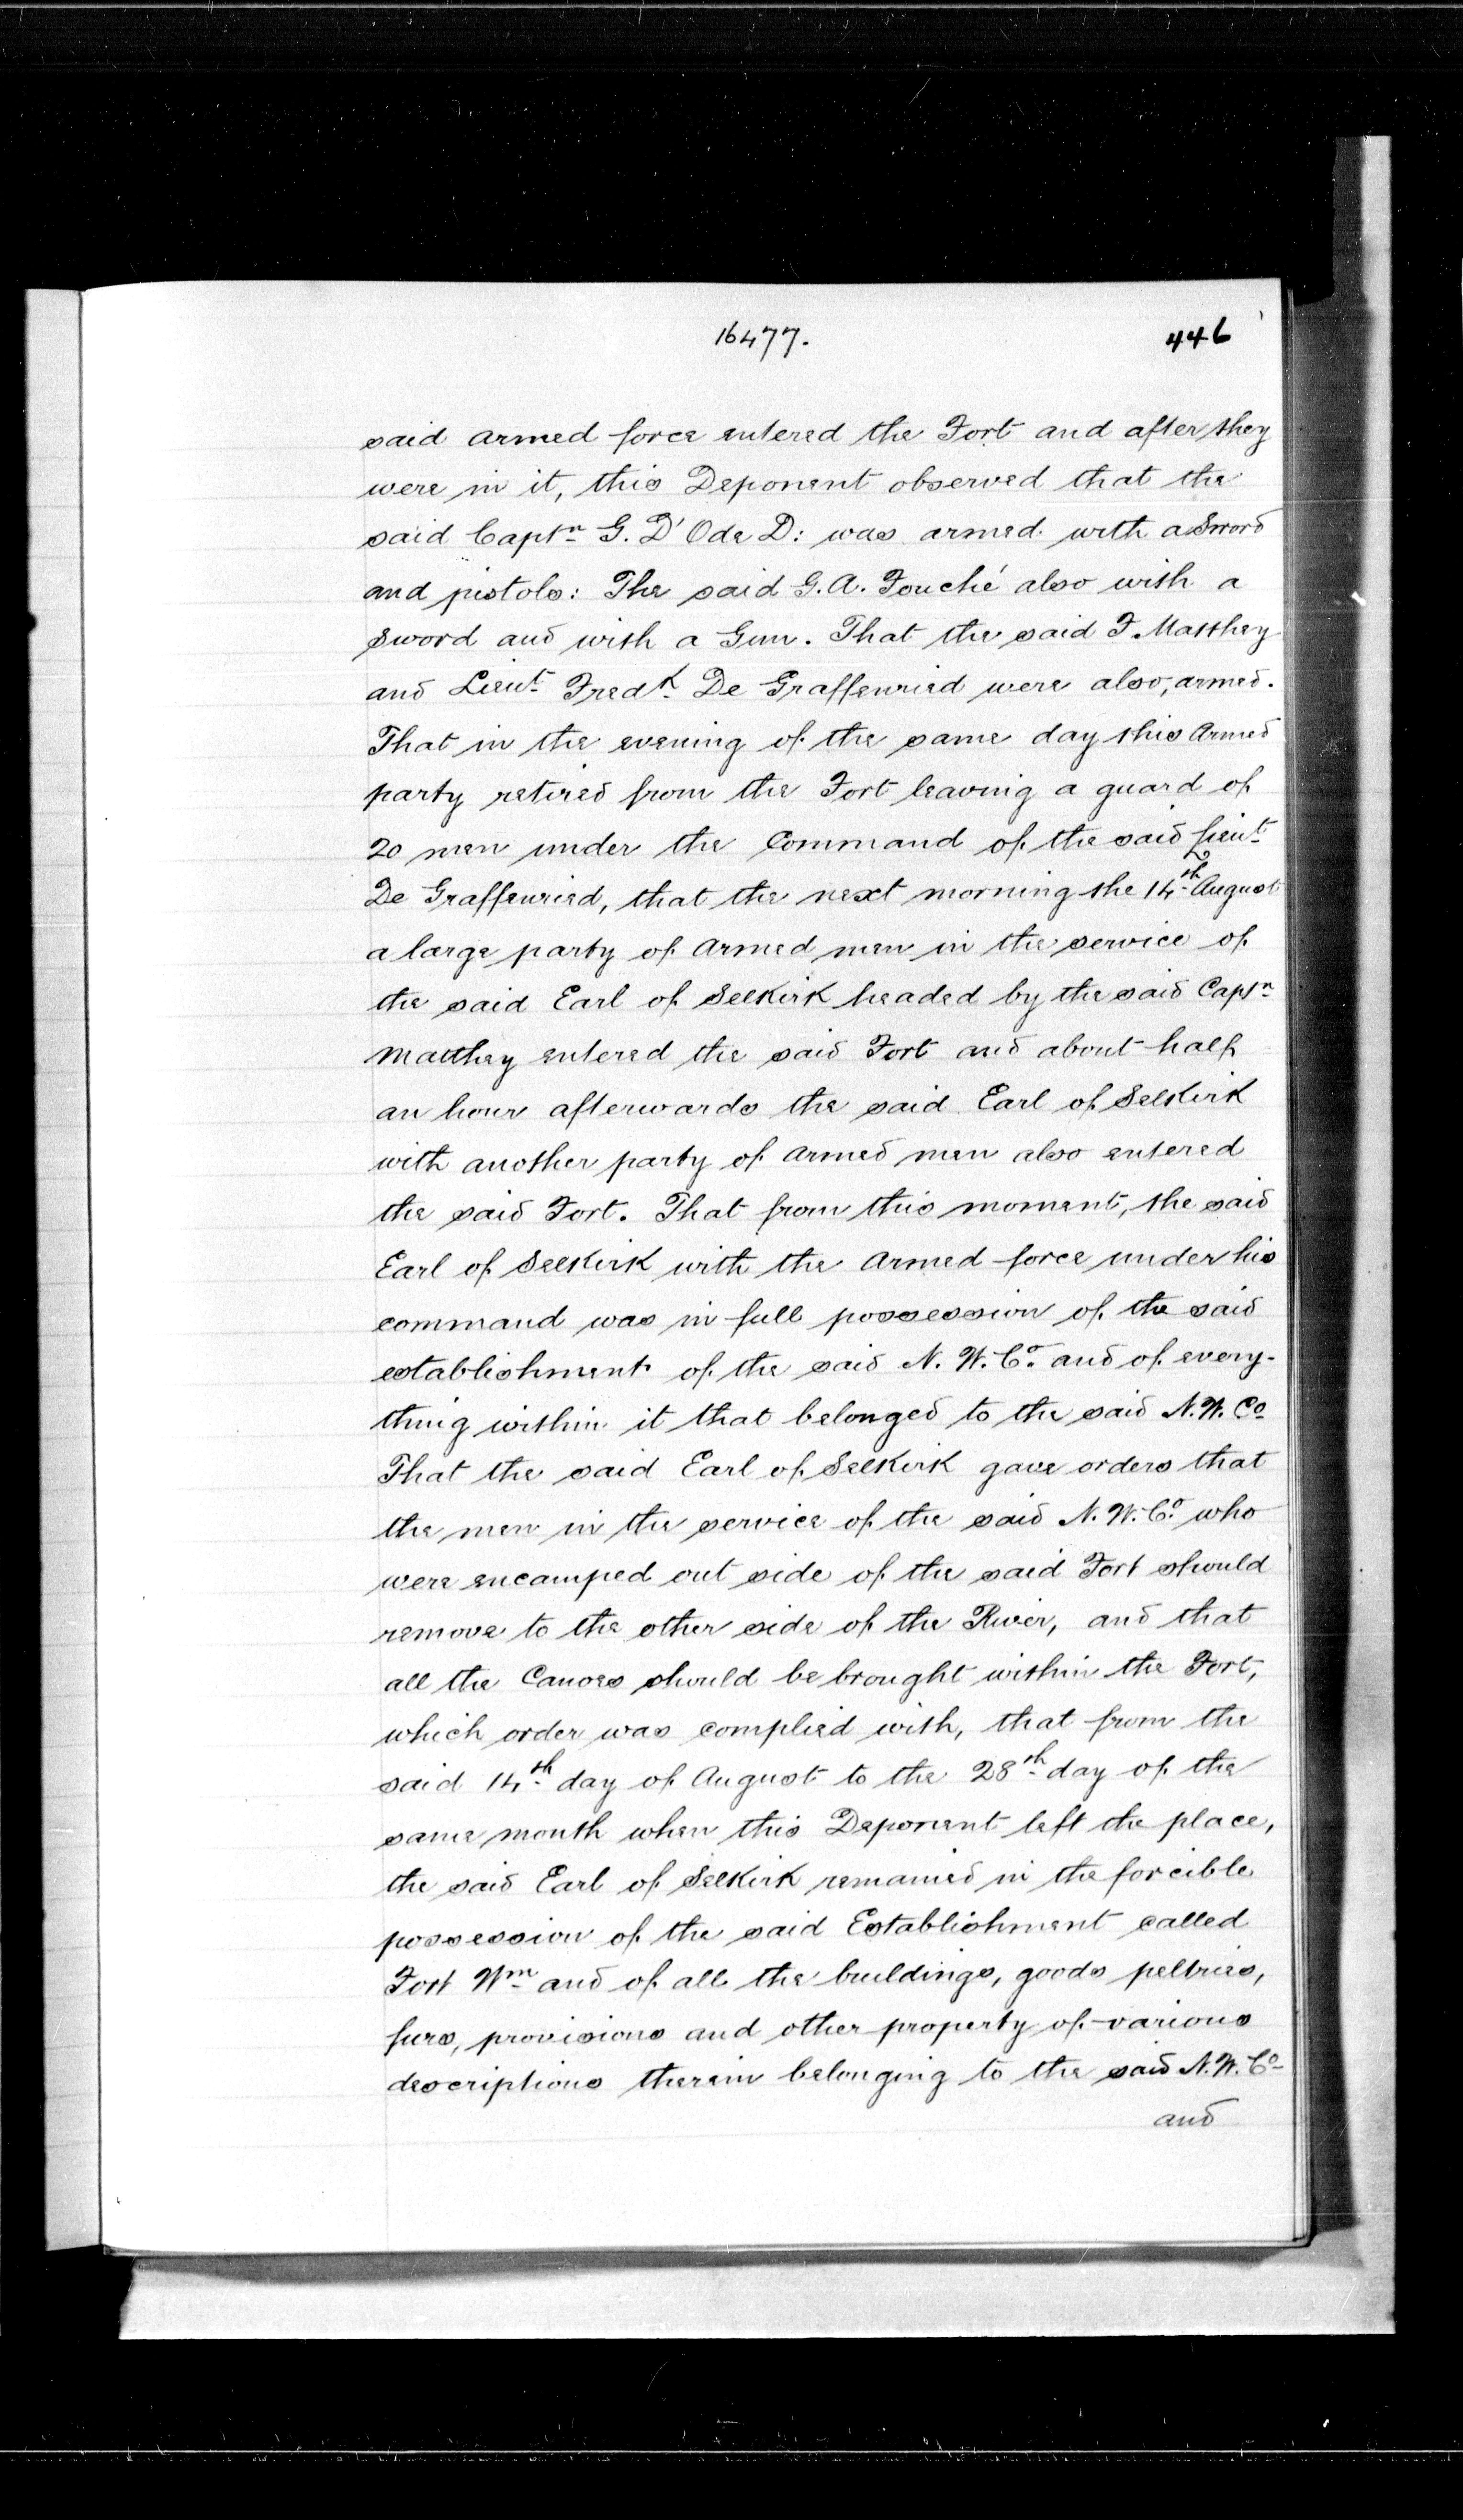 16477.
446
said armed force entered the Fort and after they
were in it, this Deponent observed that the
said Captn G. D'Ode D: was armed with a Sword
and pistols: The said G. A. Fouché also with a
sword and with a Gun. That the said F. Matthey
and Lieut Fredk De Graffenried were also, armed.
That in the evening of the same day this Armed
party retired from the Fort leaving a guard of
20 men under the Command of the said Lieut
De Graffenried, that the next morning the 14th August
a large party of Armed men in the service of
the said Earl of Selkirk headed by the said Captn
Matthey entered the said Fort and about half
an hour afterwards the said Earl of Selkirk
with another party of Armed men also entered
the said Fort. That from this moment, the said
Earl of Selkirk with the Armed force under his
command was in full possession of the said
establishment of the said N. W. Co. and of every-
thing within it that belonged to the said N. W. Co
That the said Earl of Selkirk gave orders that
the men in the service of the said N. W. Co. who
were encamped out side of the said Fort should
remove to the other side of the River, and that
all the Canoes should be brought within the Fort,
which order was complied with, that from the
said 14th day of August to the 28th day of the
same month when this Deponent left the place,
the said Earl of Selkirk remained in the forcible
possession of the said Establishment called
Fort Wm and of all the buildings, goods peltries,
furs, provisions and other property of various
descriptions therein belonging to the said N. W. Co
and